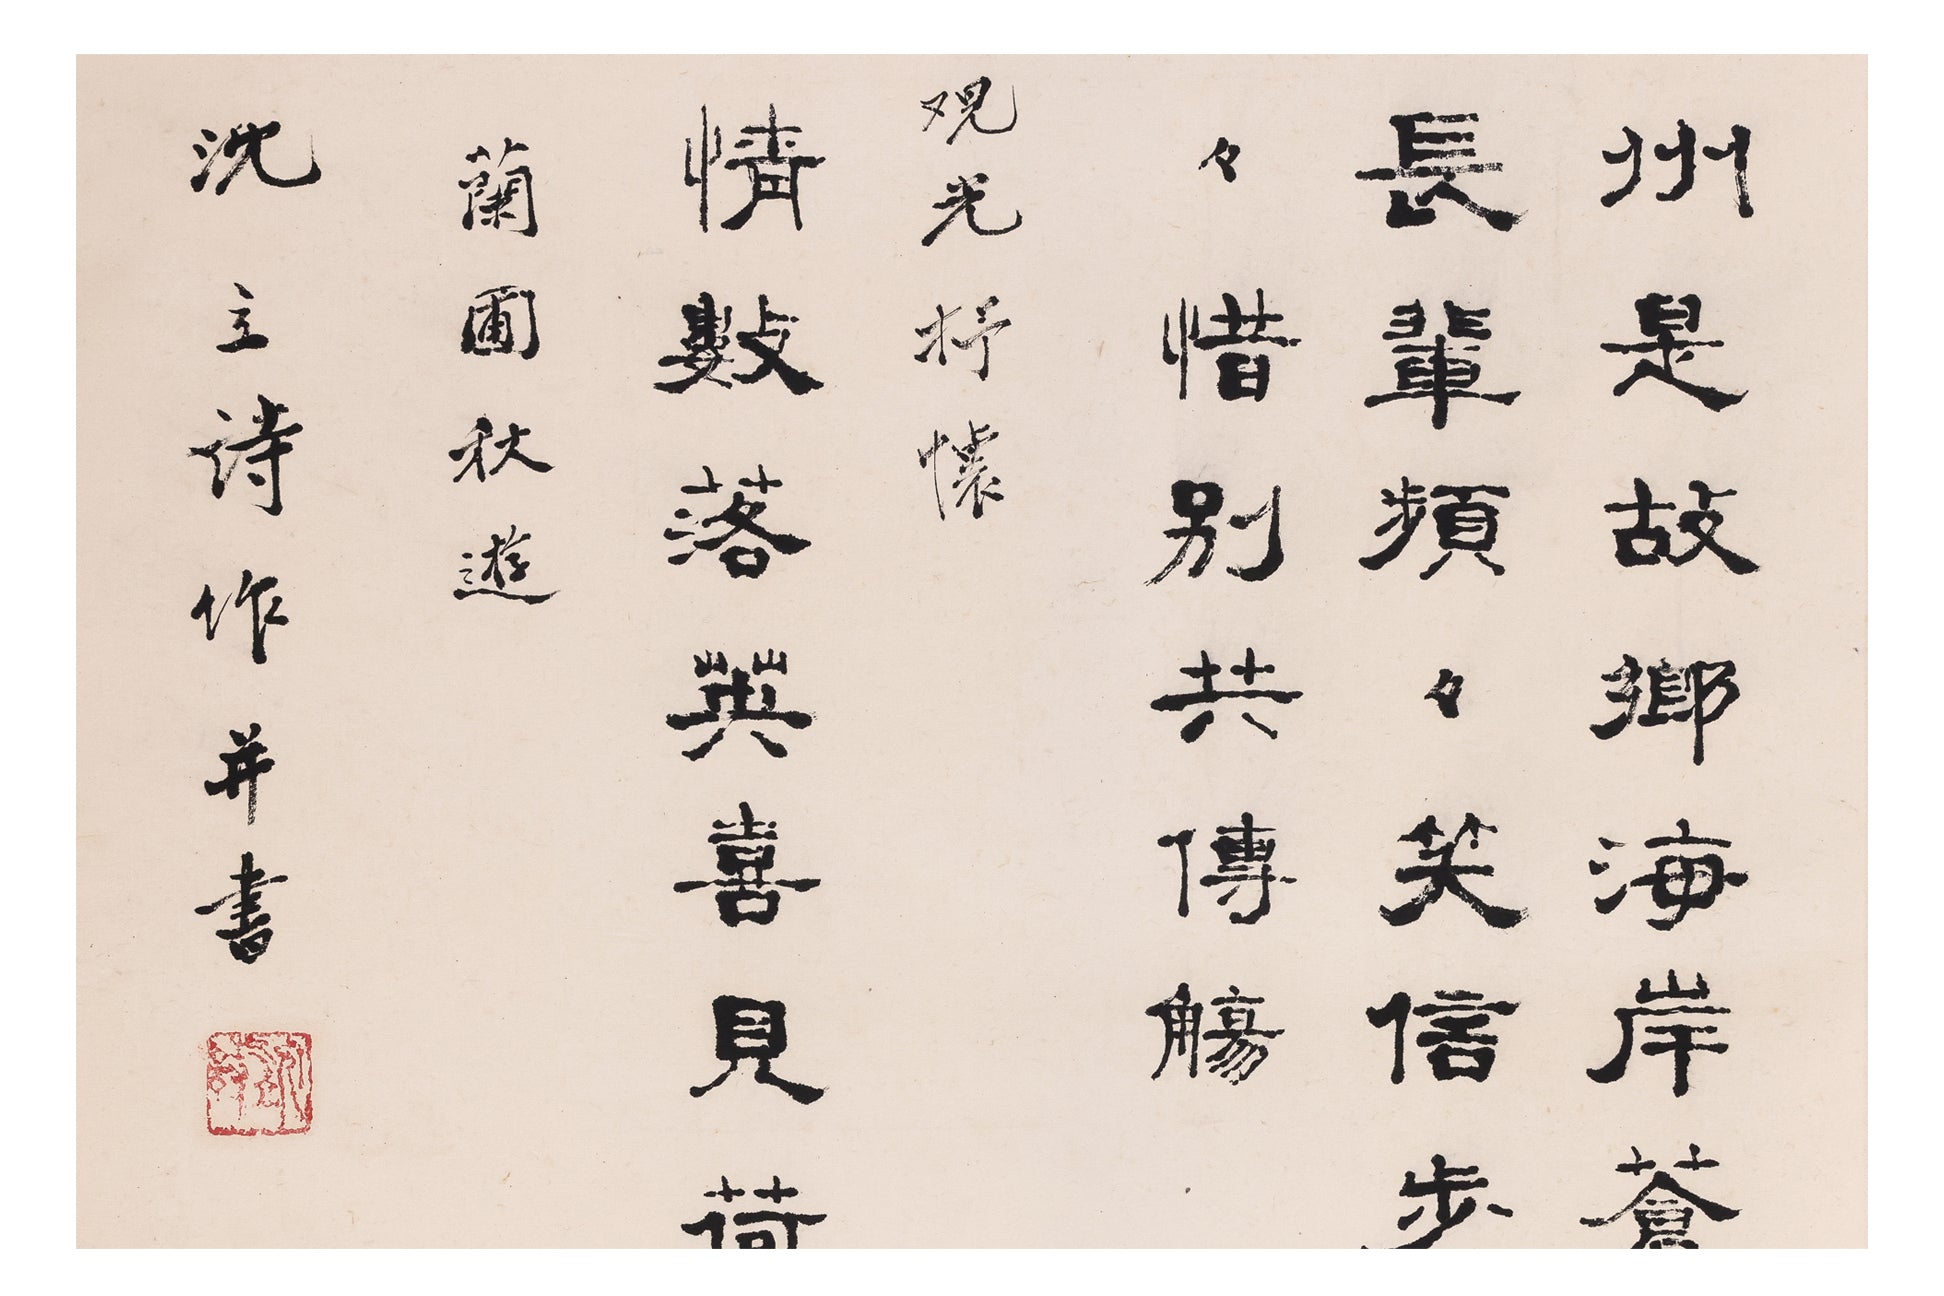 州是故鄉海岸蒼
長輩頻々笑信步
々惜別共傳觴
观光抒懷
情數落英喜見荷
蘭圃秋遊
沈立詩作并書